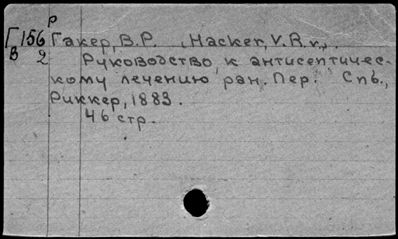 Р
Г156 Гакер, В.Р. (Hacker, V.R.v.).
В 2 Руководство к антисептичес-
кому лечению ран. Пер. Спб.,
Риккер, 1883.
46 стр.